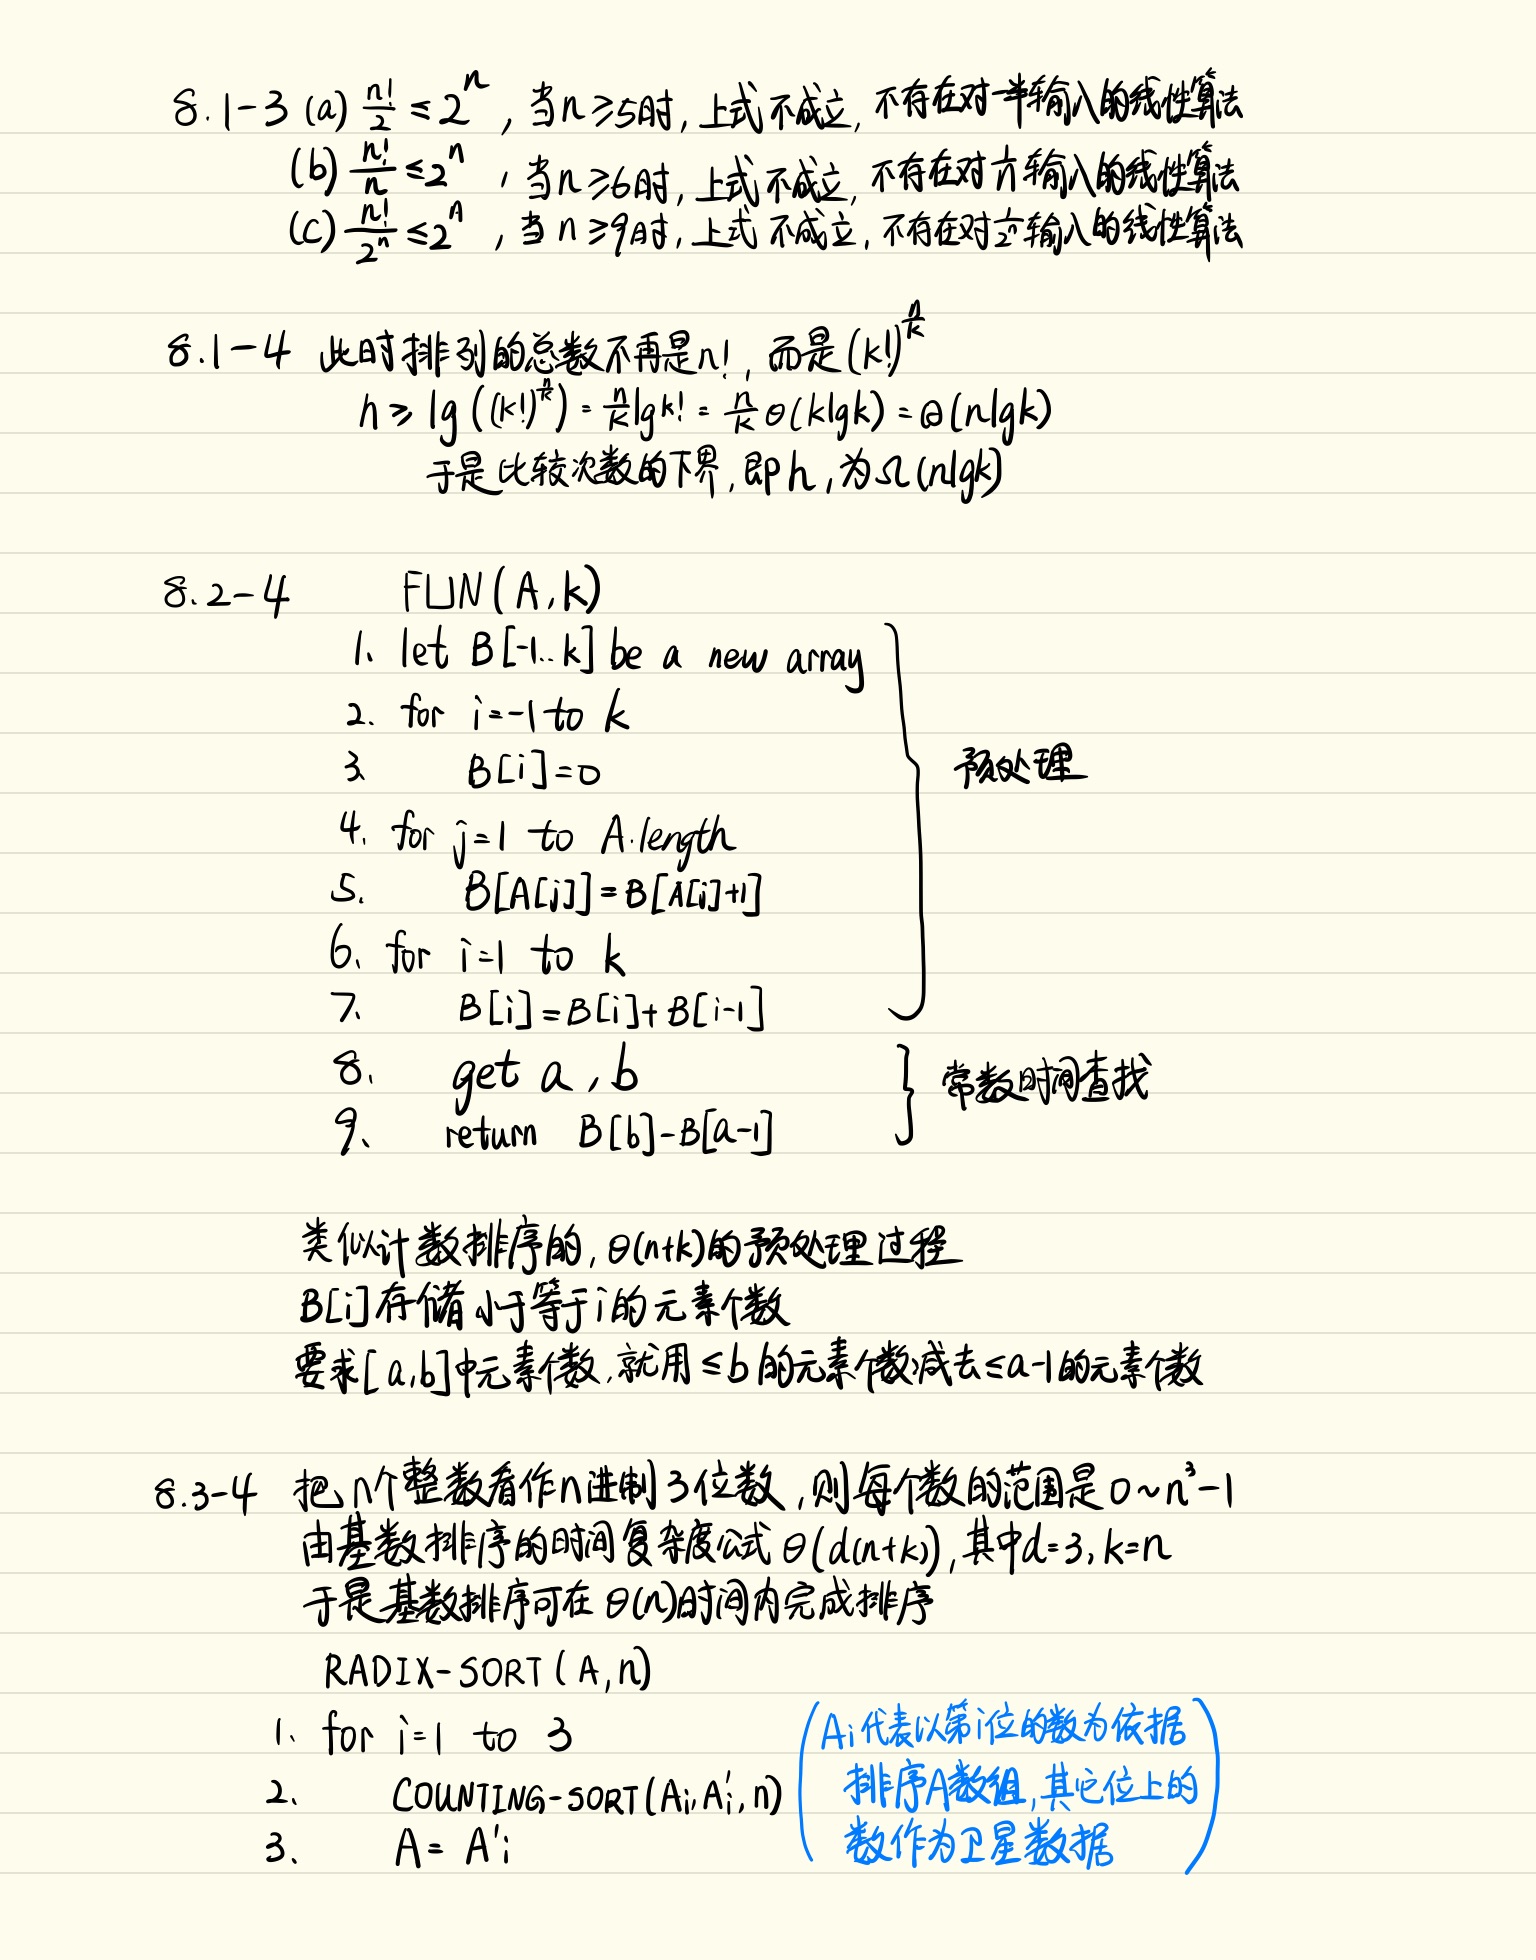 8.1-3 (a) n!/2 ≤ 2^n , 当n≥5时, 上式不成立, 不存在对一半输入的线性算法
(b) n!/n ≤ 2^n , 当n≥6时, 上式不成立, 不存在对1/n输入的线性算法
(c) n!/2^n ≤ 2^n , 当n≥9时, 上式不成立, 不存在对1/2^n输入的线性算法
8.1-4 此时排列的总数不再是n!, 而是(k!)^(n/k)
h ≥ lg((k!)^(n/k)) = n/k lg k! = n/k θ(klgk) = Θ(nlgk)
于是比较次数的下界, 即h, 为Ω(nlgk)
8.2-4 FUN(A,k)
1. let B[-1..k] be a new array
2. for i=-1 to k
3. B[i]=0
预处理
4. for j=1 to A.length
5. B[A[j]]=B[A[j]+1]
6. for i=1 to k
7. B[i]=B[i]+B[i-1]
8. get a,b
常数时间查找
9. return B[b]-B[a-1]
类似计数排序的, θ(n+k)的预处理过程
B[i]存储小于等于i的元素个数
要求[a,b]中元素个数, 就用≤b的元素个数减去≤a-1的元素个数
8.3-4 把n个整数看作n进制3位数, 则每个数的范围是0~n³-1
由基数排序的时间复杂度公式θ(d(n+k)), 其中d=3, k=n
于是基数排序可在θ(n)时间内完成排序
RADIX-SORT(A,n)
1. for i=1 to 3
2. COUNTING-SORT(Ai, A'i, n)
3. A = A'i
(Ai代表以第i位的数为依据
排序A数组, 其它位上的
数作为卫星数据)